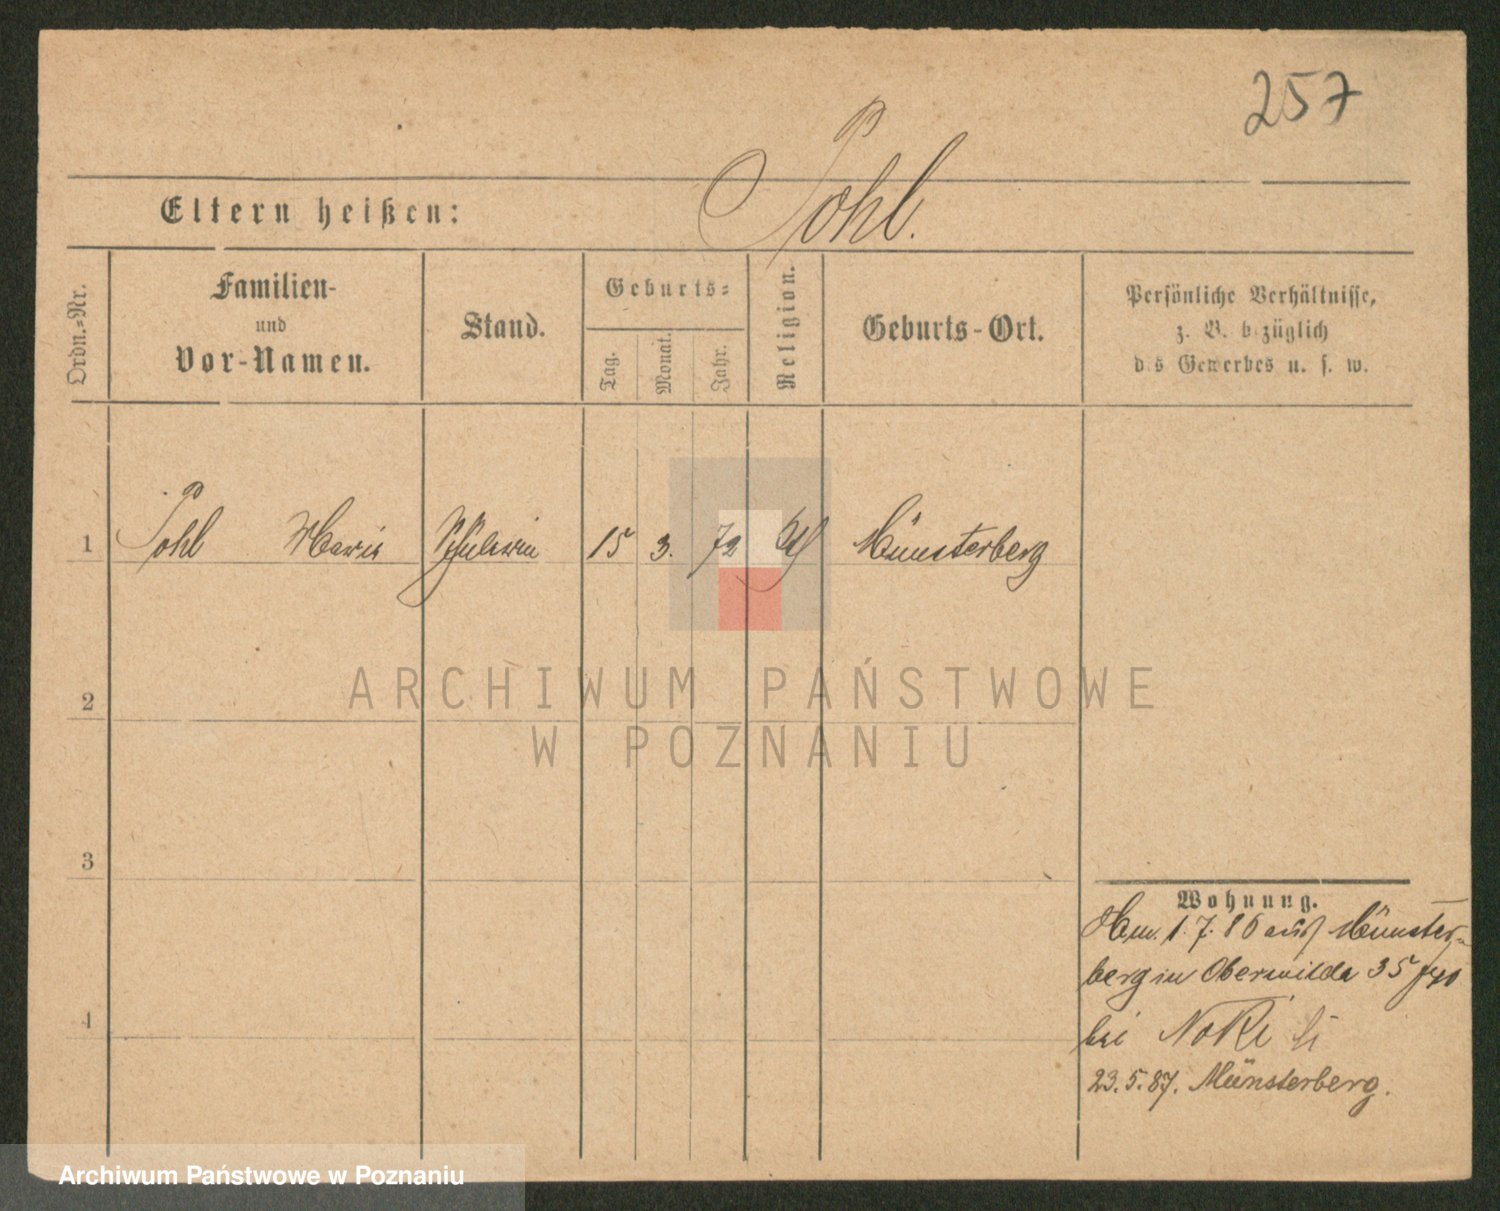 257
Pohl.
Eltern heißen:
Ordn.-Nr.
Familien-
und
Vor-Namen.
Stand.
Geburts-
Tag.
Monat.
Jahr.
Religion.
Geburts-Ort.
Persönliche Verhältnisse,
z. B. bezüglich
des Gewerbes u. s. w.
1 Pohl Marie Schülerin 15 3. 72 Münsterberg
2
3
4
ARCHIWUM PAŃSTWOWE
W POZNANIU
Wohnung.
1. 7. 86 aus Münster-
berg in Oberwilda 35
bei
23. 5. 87. Münsterberg.
Archiwum Państwowe w Poznaniu